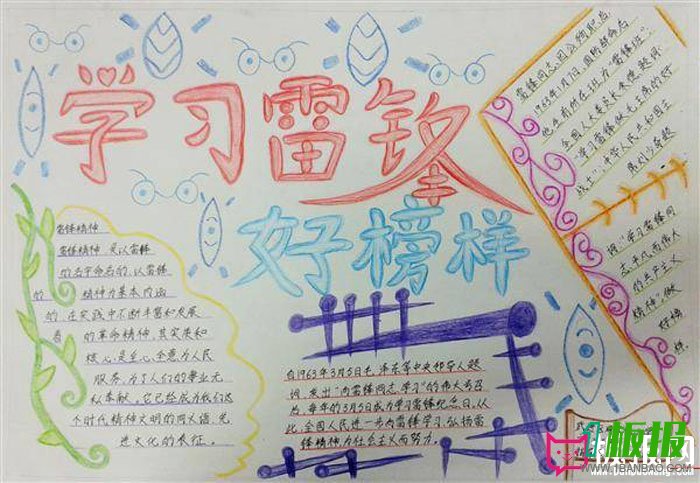 学习雷锋
好榜样
雷锋精神
雷锋精神 是以雷锋
的名字命名的,以雷锋
的 精神为基本内涵
的,在实践中不断丰富和发展
着 的革命精神,其实质和
核心是全心全意为人民
服务,为了人们的事业无
私奉献。它已经成为我们这
个时代精神文明的同义语,先
进文化的表征。
自1963年3月5日毛泽东等中央领导人题
词,发出"向雷锋同志学习"的伟大号召
后,每年的3月5日成为学习雷锋纪念日,从此
全国人民进一步向雷锋学习,弘扬雷
锋精神为社会主义而努力。
雷锋同志因公殉职后
1963年1月7日,国防部命名
他生前所在班为"雷锋班"
全国人大委员长朱德题词
"学习雷锋做毛主席的好
战士",中华人民共和国主
席刘少奇题
词"学习雷锋同
志平凡而伟大
的共产主义
精神"做
好榜
样.
1板报
WWW.1BANBAO.COM